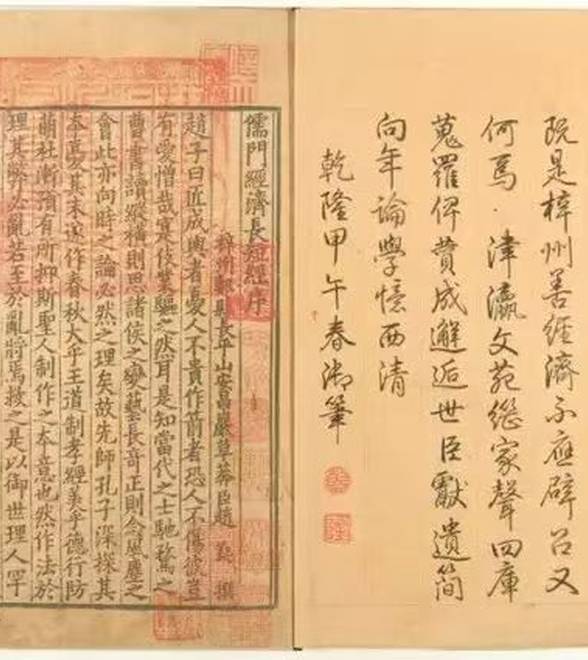 既是梓州善經濟不應辟召又
何焉·津瀛文苑繼家聲四庫
蒐羅俾賁成邂逅世臣獻遺簡
向年論學憶西清
乾隆甲午春御筆
儒門經濟長短經序
梓州郪縣長平山安昌巖草莽臣趙 蕤 撰
趙子曰匠成輿者憂人不貴作箭者恐人不傷彼豈
有愛憎哉寔伎業驅之然耳是知當代之士馳騖之
曹書讀縱橫則思諸侯之變藝長奇正則念風塵之
會此亦向時之論必然之理矣故先師孔子深探其
本憂其末遂作春秋大乎王道制孝經美乎德行防
萌杜漸預有所抑斯聖人制作之本意也然作法於
理其弊必亂若至於亂將焉救之是以御世理人罕